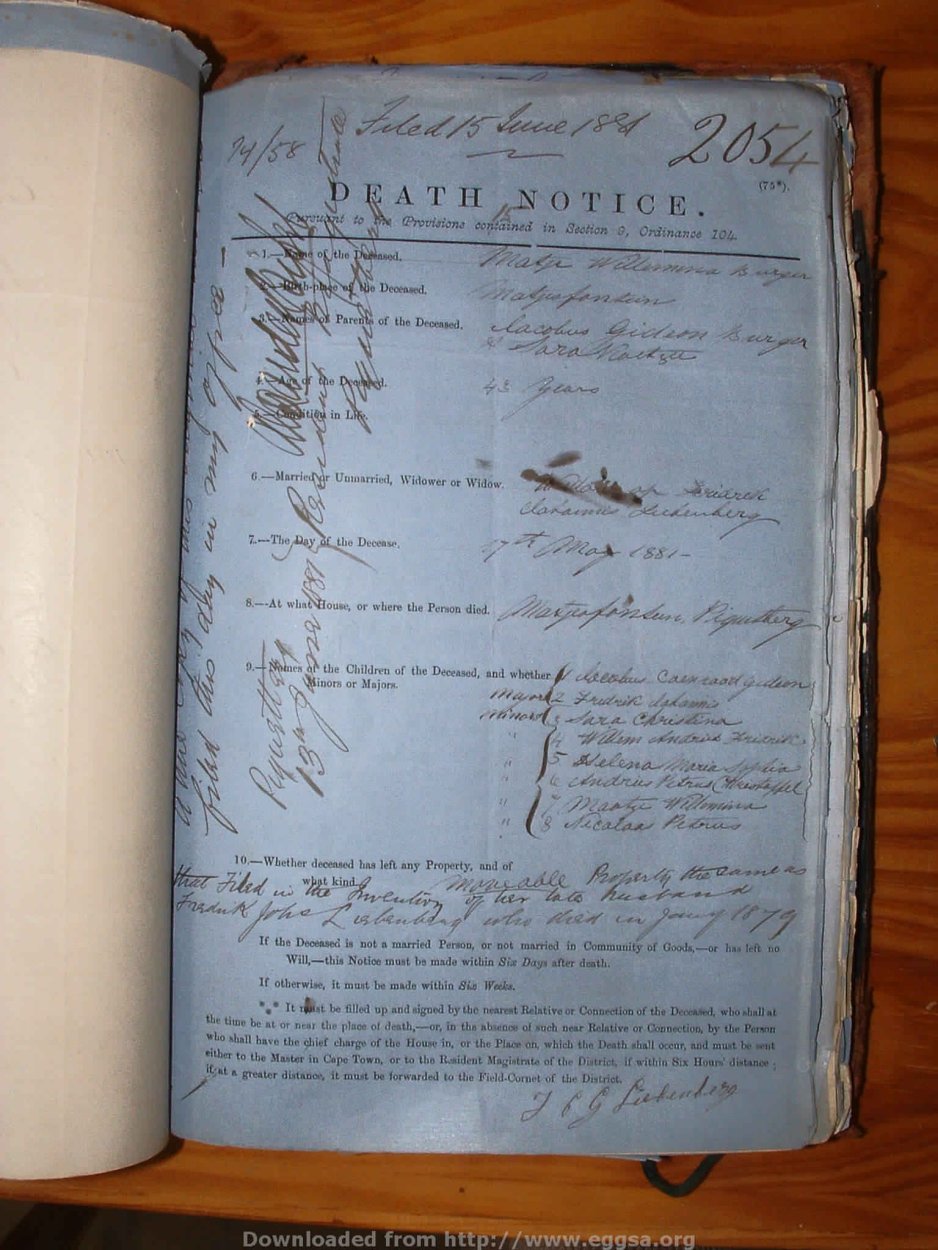 Filed 15 June 1881
74/58
2054
(75*).
DEATH NOTICE.
Pursuant to the Provisions contained in Section 9, Ordinance 104.
1.—Name of the Deceased. Willemina Burger
2.—Birth-place of the Deceased. Matjesfontein
3.—Names of Parents of the Deceased. Jacobus Gideon Burger
& Sara
4.—Age of the Deceased. 43 years
5.—Condition in Life.
6.—Married or Unmarried, Widower or Widow. Widow of Fridrik
Johannis Liebenberg
7.—The Day of the Decease. 17th May 1881-
8.—At what House, or where the Person died. Matjesfontein, Piquetberg
9.—Names of the Children of the Deceased, and whether
Minors or Majors.
1 Jacobus Coenraad Gideon
Majors 2 Fredrik Johannis
Minors 3 Sara Christina
" 4 Willem Andries Fridrik
" 5 Helena Maria Sophia
" 6 Andries Petrus Christoffel
" 7 Maatje Willemina
" 8 Nicolaas Petrus
10.—Whether deceased has left any Property, and of
what kind. Moveable Property the same as
that Filed in the Inventory of her late husband
Fredrik Johs Liebenberg who died in Jany 1879
If the Deceased is not a married Person, or not married in Community of Goods,—or has left no
Will,—this Notice must be made within Six Days after death.
If otherwise, it must be made within Six Weeks.
*** It must be filled up and signed by the nearest Relative or Connection of the Deceased, who shall at
the time be at or near the place of death,—or, in the absence of such near Relative or Connection, by the Person
who shall have the chief charge of the House in, or the Place on, which the Death shall occur, and must be sent
either to the Master in Cape Town, or to the Resident Magistrate of the District, if within Six Hours' distance;
if at a greater distance, it must be forwarded to the Field-Cornet of the District.
J C G Liebenberg
A true copy of this
filed this day in my office —
Piquetberg
13th June 1881
Resident Magistrate
Piquetberg
Downloaded from http://www.eggsa.org